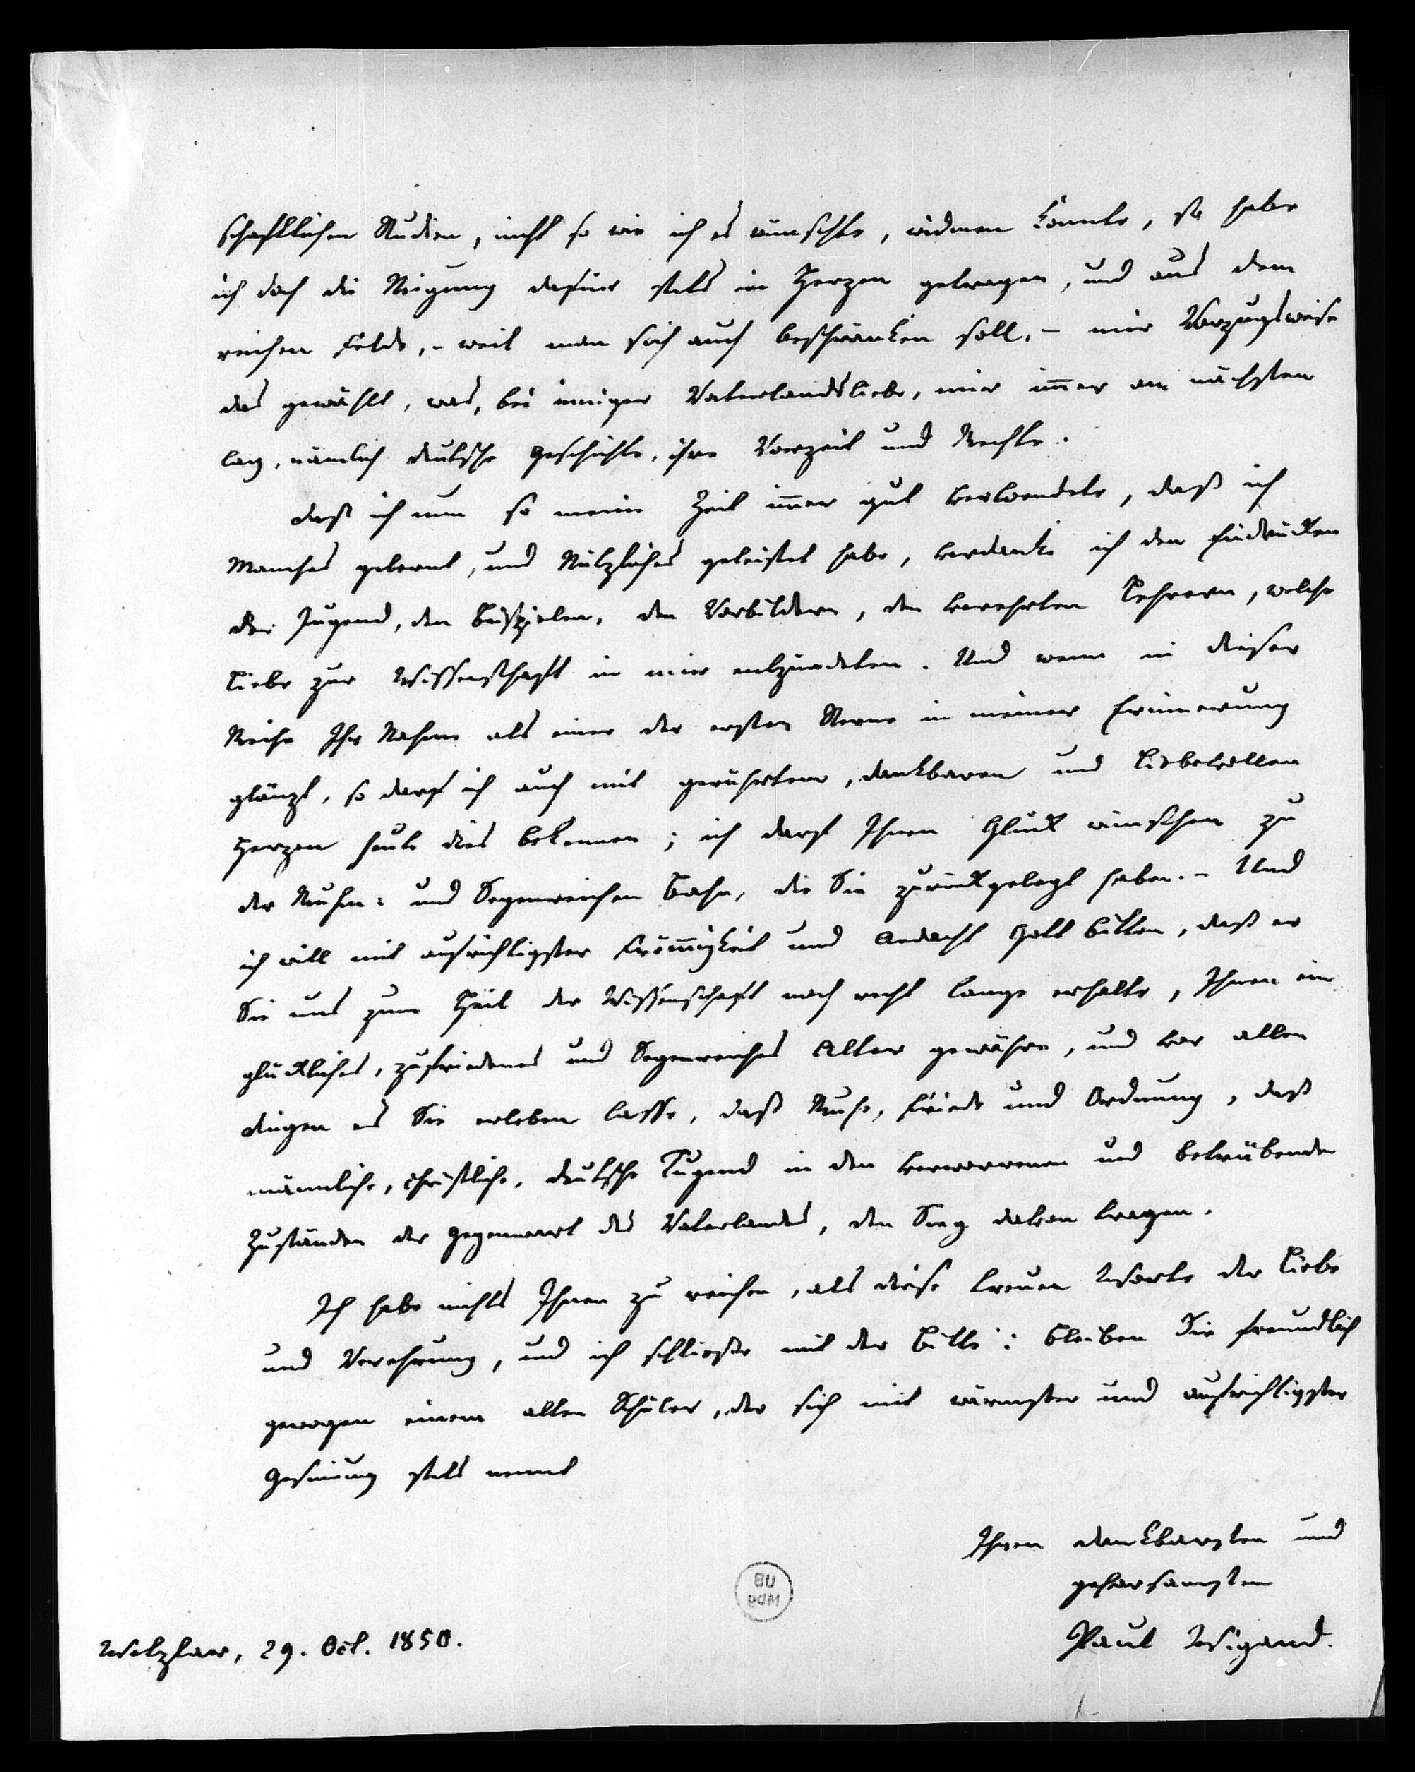 schaftlichen Studien, nicht so wie ich es wünschte, widmen konnte, so habe
ich doch die Neigung dafür stets im Herzen getragen, und aus dem
reichen Felde, – weil man sich auch beschränken soll, – mir Vorzugsweise
das gewählt, was, bei inniger Vaterlandsliebe, mir im̄er am nächsten
lag, nämlich deutsche Geschichte, ihre Vorzeit und Rechte.
Daß ich nun so meine Zeit im̄er gut verwendete, daß ich
Manches gelernt, und Nützliches geleistet habe, verdanke ich den Eindrücken
der Jugend, den Beispielen, den Vorbildern, den verehrten Lehrern, welche
Liebe zur Wissenschaft in mir entzündeten. Und wenn in dieser
Reihe Ihr Nahme als einer der ersten Sterne in meiner Erinnerung
glänzt, so darf ich auch mit gerührtem, dankbaren und Liebevollen
Herzen heute dies bekennen; ich darf Ihnen Glück wünschen zu
der Ruhm- und Segenreichen Bahn, die Sie zurückgelegt haben. – Und
ich will mit aufrichtigster Fröm̄igkeit und Andacht Gott bitten, daß er
Sie uns zum Heil der Wissenschaft noch recht lange erhalte, Ihnen ein
glückliches, zufriedenes und Segenreiches Alter gewähre, und vor allen
dingen es Sie erleben lasse, daß Ruhe, Friede und Ordnung, daß
männliche, christliche, deutsche Tugend in den verworrenen und betrübenden
Zuständen der Gegenwart des Vaterlandes, den Sieg davon tragen.
Ich habe nichts Ihnen zu reichen, als diese treuen Worte der Liebe
und Verehrung, und ich schließe mit der Bitte: bleiben Sie freundlich
gewogen einem alten Schüler, der sich mit wärmster und aufrichtigster
Gesinnung stets nennt
Ihren dankbarsten und
gehorsamsten
Paul Wigand.
Wetzlar, 29. Oct. 1850.